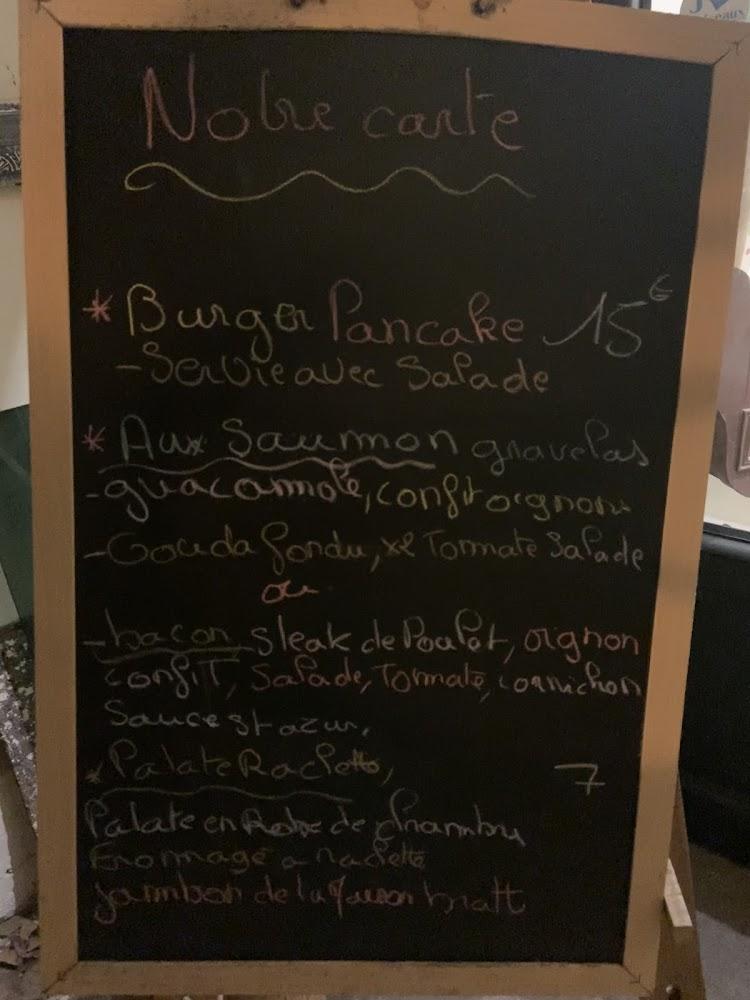 Notre carte
* Burger Pancake 15€
- Servie avec Salade
* Aux Saumon gravelas
- guacamole, confit oignons
- Gouda fondu, Tormate Salade
ou
- bacon Steak de Poulet, oignon
confit, Salade, Tormate, cornichon
Sauce st azur,
* Patate Raclette, 7
Patate en Robe de chambre
Fromage a raclette
Jambon de la